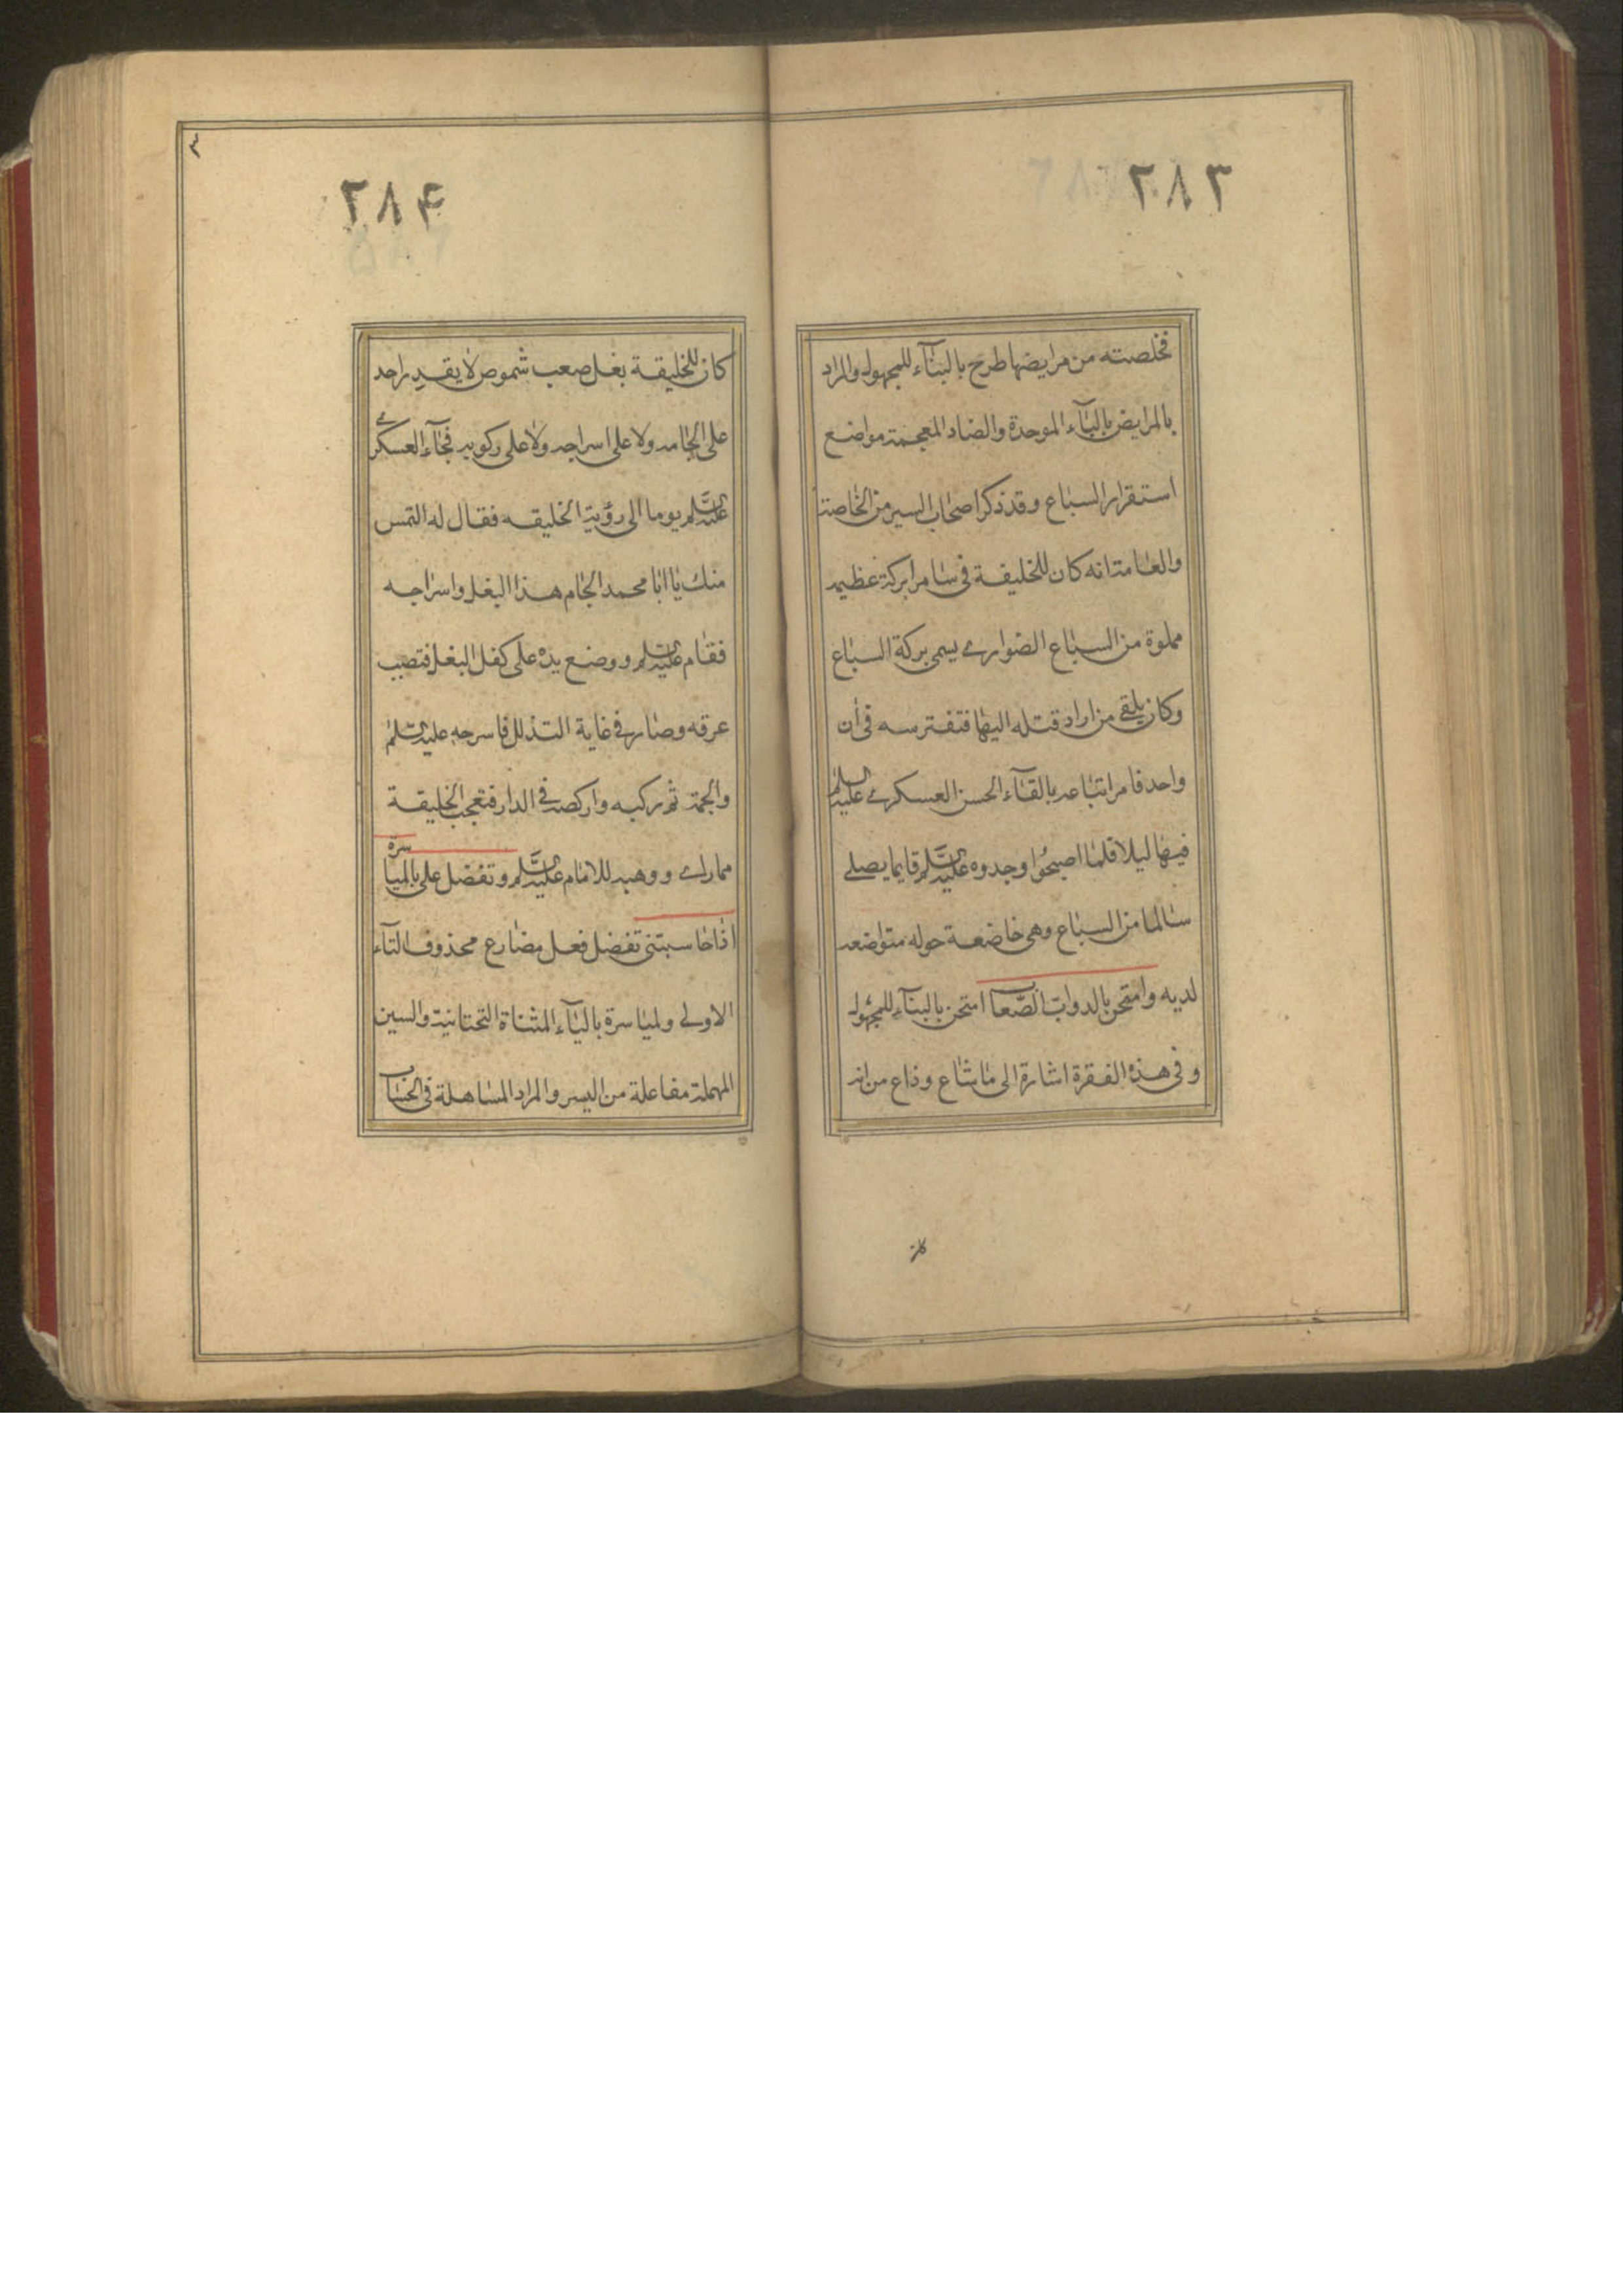 ۲۸۳
فخلصته من مرابضها طرح بالبنآء للمجهول والمراد
بالمرابض بالبآء الموحدة والضاد المعجمة مواضع
استقرار السباع وقد ذكر اصحاب السير من الخاصة
والعامة انه كان للخليفة فى سامرا بركة عظيمه
مملوة من السباع الضوارى يسمى بركة السباع
وكان يلقى من اراد قتله اليها فتفترسه فى ان
واحد فامر اتباعه بالقآء الحسن العسكرى عليه السلم
فيها ليلا فلما اصبحوا وجدوه عليه السلم قايما يصلى
سالما من السباع وهى خاضعة حوله متواضعه
لديه وامتحن بالدواب الصعاب امتحن بالبنآء للمجهول
وفى هذه الفقرة اشارة الى ما شاع وذاع من انه
كان
۲۸۴
كان للخليفة بغل صعب شموص لا يقدر احد
على الجامه ولا على اسراجه ولا على ركوبه فجآء العسكرى
عليه السلم يوما الى رؤية الخليفه فقال له التمس
منك يا ابا محمد الجام هذا البغل واسراجه
فقام عليه السلم ووضع يده على كفل البغل فتصبب
عرقه وصار فى غاية التذلل فاسرجه عليه السلم
والجمه ثم ركبه واركضه فى الدار فتعجب الخليفة
مما راى ووهبه للامام عليه السلم وتفضل على بالمياسرة
اذا حاسبتنى تفضل فعل مضارع محذوف التآء
الاولى ولمياسرة باليآء المثناة التحتانية والسين
المهملة مفاعلة من اليسر والمراد المساهلة فى الحساب